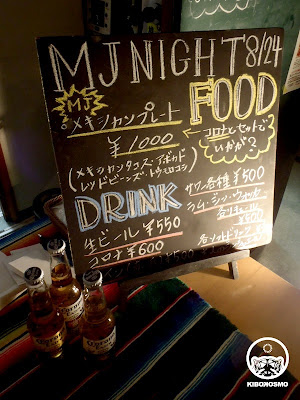 MJ NIGHT 8/24
MJ
FOOD
メキシカンプレート
¥1000
コロナとセットで
いかが?
(メキシカンタコス・アボカド
レッドビーンズ・トウモロコシ)
DRINK
サワー各種 ¥500
ラム・ジン・ウォッカ
各リキュール
¥500
生ビール ¥550
コロナ ¥600
各ソフトドリンク
KIBONOSMO